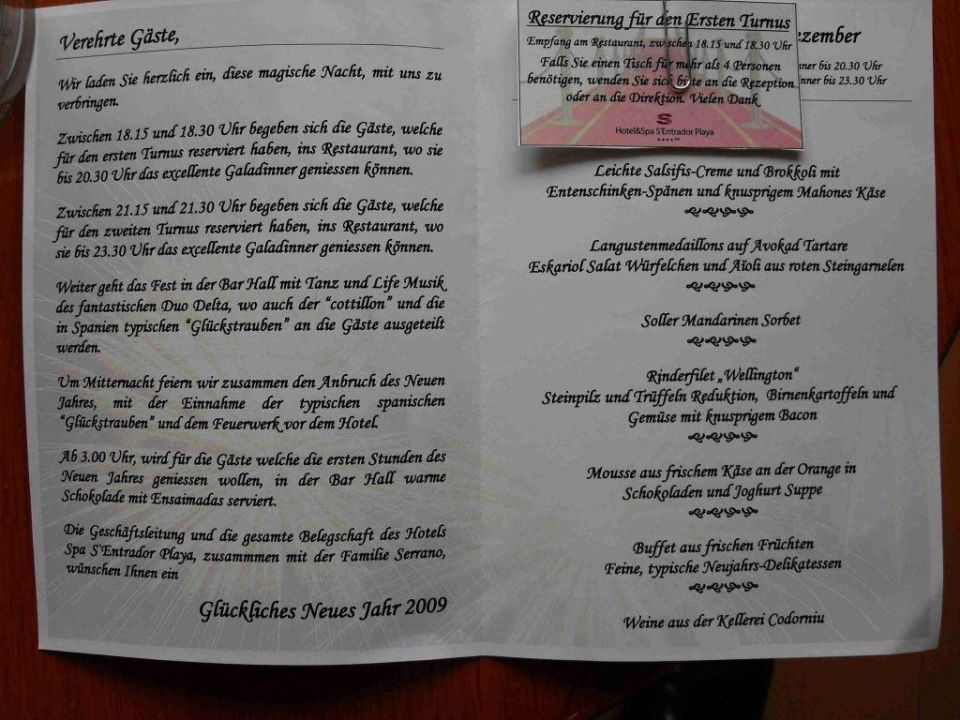 Verehrte Gäste,
Wir laden Sie herzlich ein, diese magische Nacht, mit uns zu
verbringen.
Zwischen 18.15 und 18.30 Uhr begeben sich die Gäste, welche
für den ersten Turnus reserviert haben, ins Restaurant, wo sie
bis 20.30 Uhr das excellente Galadinner geniessen können.
Zwischen 21.15 und 21.30 Uhr begeben sich die Gäste, welche
für den zweiten Turnus reserviert haben, ins Restaurant, wo
sie bis 23.30 Uhr das excellente Galadinner geniessen können.
Weiter geht das Fest in der Bar Hall mit Tanz und Life Musik
des fantastischen Duo Delta, wo auch der "cottillon" und die
in Spanien typischen "Glückstrauben" an die Gäste ausgeteilt
werden.
Um Mitternacht feiern wir zusammen den Anbruch des Neuen
Jahres, mit der Einnahme der typischen spanischen
"Glückstrauben" und dem Feuerwerk vor dem Hotel.
Ab 3.00 Uhr, wird für die Gäste welche die ersten Stunden des
Neuen Jahres geniessen wollen, in der Bar Hall warme
Schokolade mit Ensaimadas serviert.
Die Geschäftsleitung und die gesamte Belegschaft des Hotels
Spa S'Entrador Playa, zusammmen mit der Familie Serrano,
wünschen Ihnen ein
Glückliches Neues Jahr 2009
Reservierung für den Ersten Turnus
Empfang am Restaurant, zwischen 18.15 und 18.30 Uhr
Falls Sie einen Tisch für mehr als 4 Personen
benötigen, wenden Sie sich bitte an die Rezeption
oder an die Direktion. Vielen Dank
Hotel&Spa S'Entrador Playa
ezember
nner bis 20.30 Uhr
nner bis 23.30 Uhr
Leichte Salsifis-Creme und Brokkoli mit
Entenschinken-Spänen und knusprigem Mahones Käse
Langustenmedaillons auf Avokad Tartare
Eskariol Salat Würfelchen und Aïoli aus roten Steingarnelen
Soller Mandarinen Sorbet
Rinderfilet „Wellington"
Steinpilz und Trüffeln Reduktion, Birnenkartoffeln und
Gemüse mit knusprigem Bacon
Mousse aus frischem Käse an der Orange in
Schokoladen und Joghurt Suppe
Buffet aus frischen Früchten
Feine, typische Neujahrs-Delikatessen
Weine aus der Kellerei Codorniu